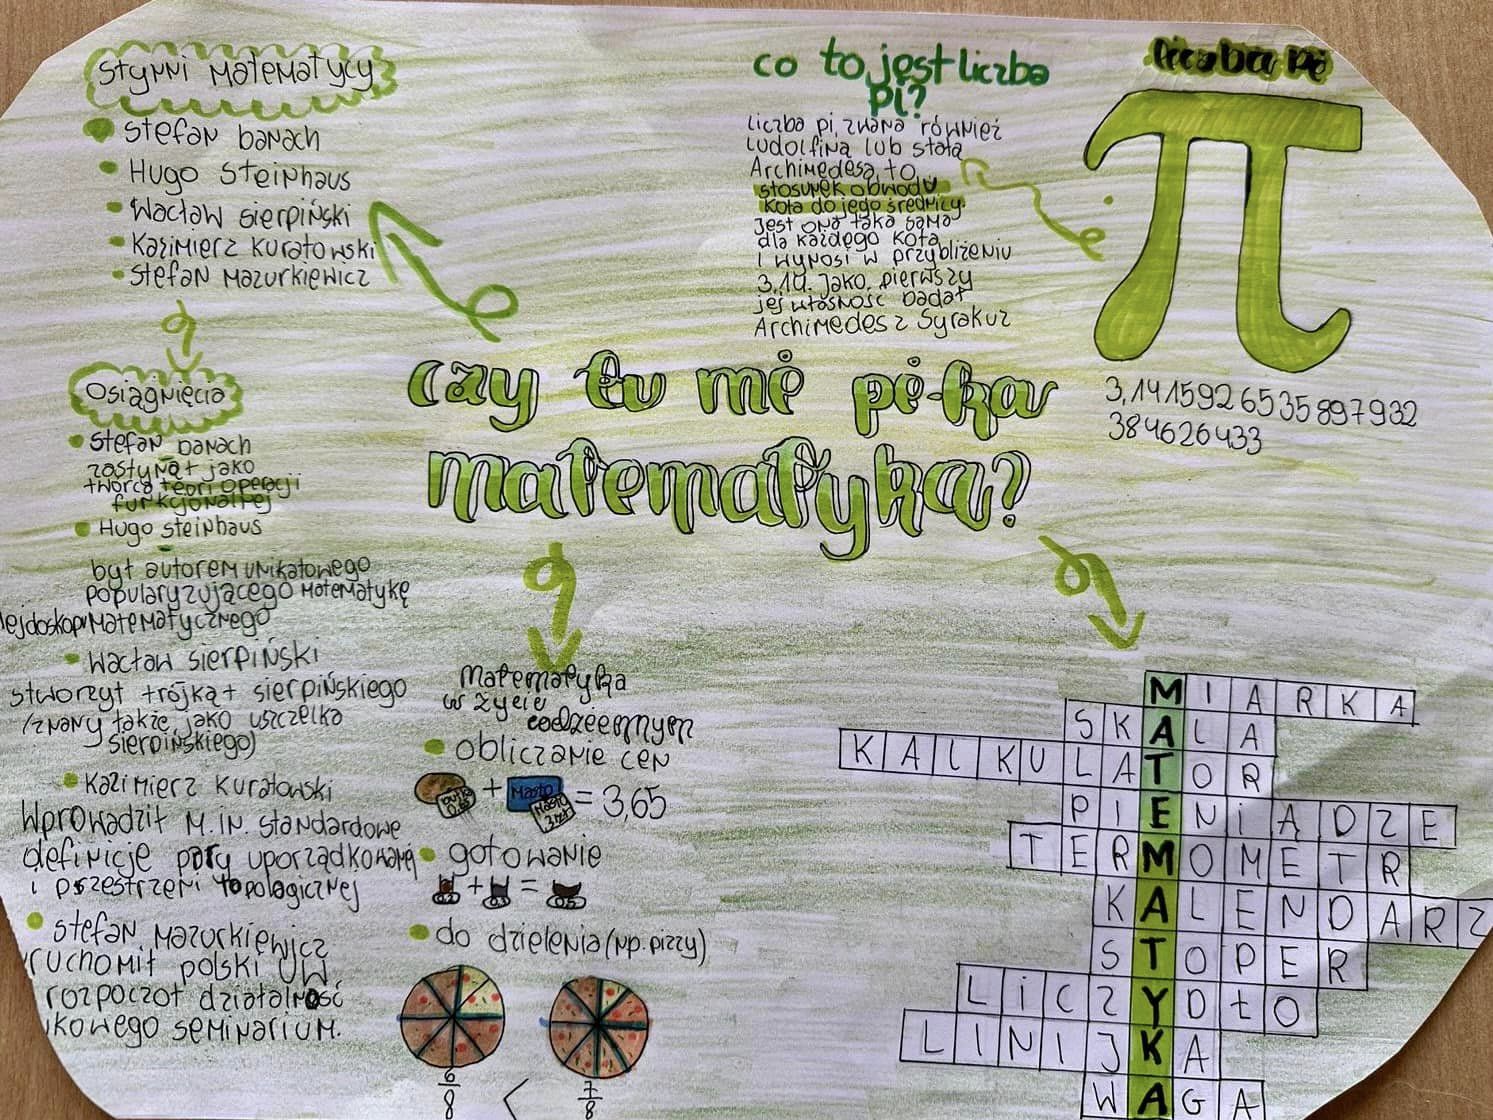 Słynni matematycy
Stefan banach
Hugo Steinhaus
Wacław sierpiński
Kazimierz Kuratowski
Stefan Mazurkiewicz
Osiągnięcia
Stefan banach
zasłynął jako
twórca teori operacji
funkcjonalnej
Hugo steinhaus
był autorem unikatowego
popularyzującego matematykę
lejdoskopu matematycznego
Wacław sierpiński
stworzył trójkąt sierpińskiego
(znany także jako uszczelka
sierpińskiego)
Kazimierz Kuratowski
Wprowadził m.in. standardowe
definicje pary uporządkowanej
i przestrzeni topologicznej
Stefan Mazurkiewicz
ruchomił polski UW
rozpoczął działalność
kowego seminarium.
co to jest liczba
pi?
liczba pi, zwana również
ludolfiną lub stałą
Archimedesa, to
stosunek obwodu
koła do jego średnicy.
jest ona taka sama
dla każdego koła
i wynosi w przybliżeniu
3,14. Jako pierwszy
jej własność badał
Archimedes z Syrakuz
liczba pi
π
3,141592653589793 2
384626433
czy tu mi pi-ka
matematyka?
Matematyka
w życiu
codziennym
obliczanie cen
+ Masło = 3,65
gotowanie
0.2 + 0.3 = 0.5
do dzielenia (np. pizzy)
6/8 < 7/8
MIARKA
SKALA
KALKULATOR
PIENIĄDZE
TERMOMETR
KALENDARZ
STOPER
LICZYDŁO
LINIJKA
WAGA